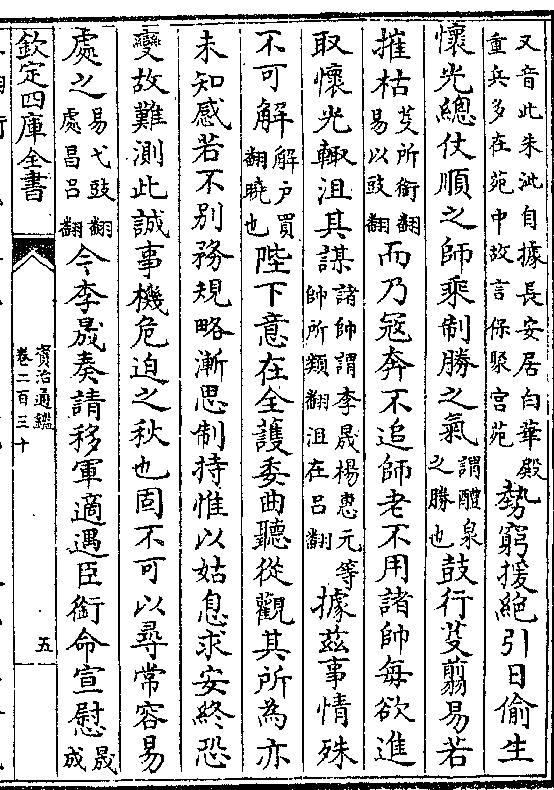 又音此朱泚自據長安居白華殿重兵多在苑中故言保聚宮苑勢窮援絕引日偷生
懷光總仗順之師乘制勝之氣謂醴泉之勝也鼓行芟翦易若
摧枯芟所銜翻易以豉翻而乃寇奔不追師老不用諸帥每欲進
取懷光輒沮其謀諸帥謂李晟楊惠元等帥所類翻沮在呂翻據茲事情殊
不可解解戶買翻曉也陛下意在全護委曲聽從觀其所為亦
未知感若不別務規略漸思制持惟以姑息求安終恐
變故難測此誠事機危迫之秋也固不可以尋常容易
處之易弋豉翻處昌呂翻今李晟奏請移軍適遇臣銜命宣慰晟成
欽定四庫全書
資治通鑑
卷二百三十
五